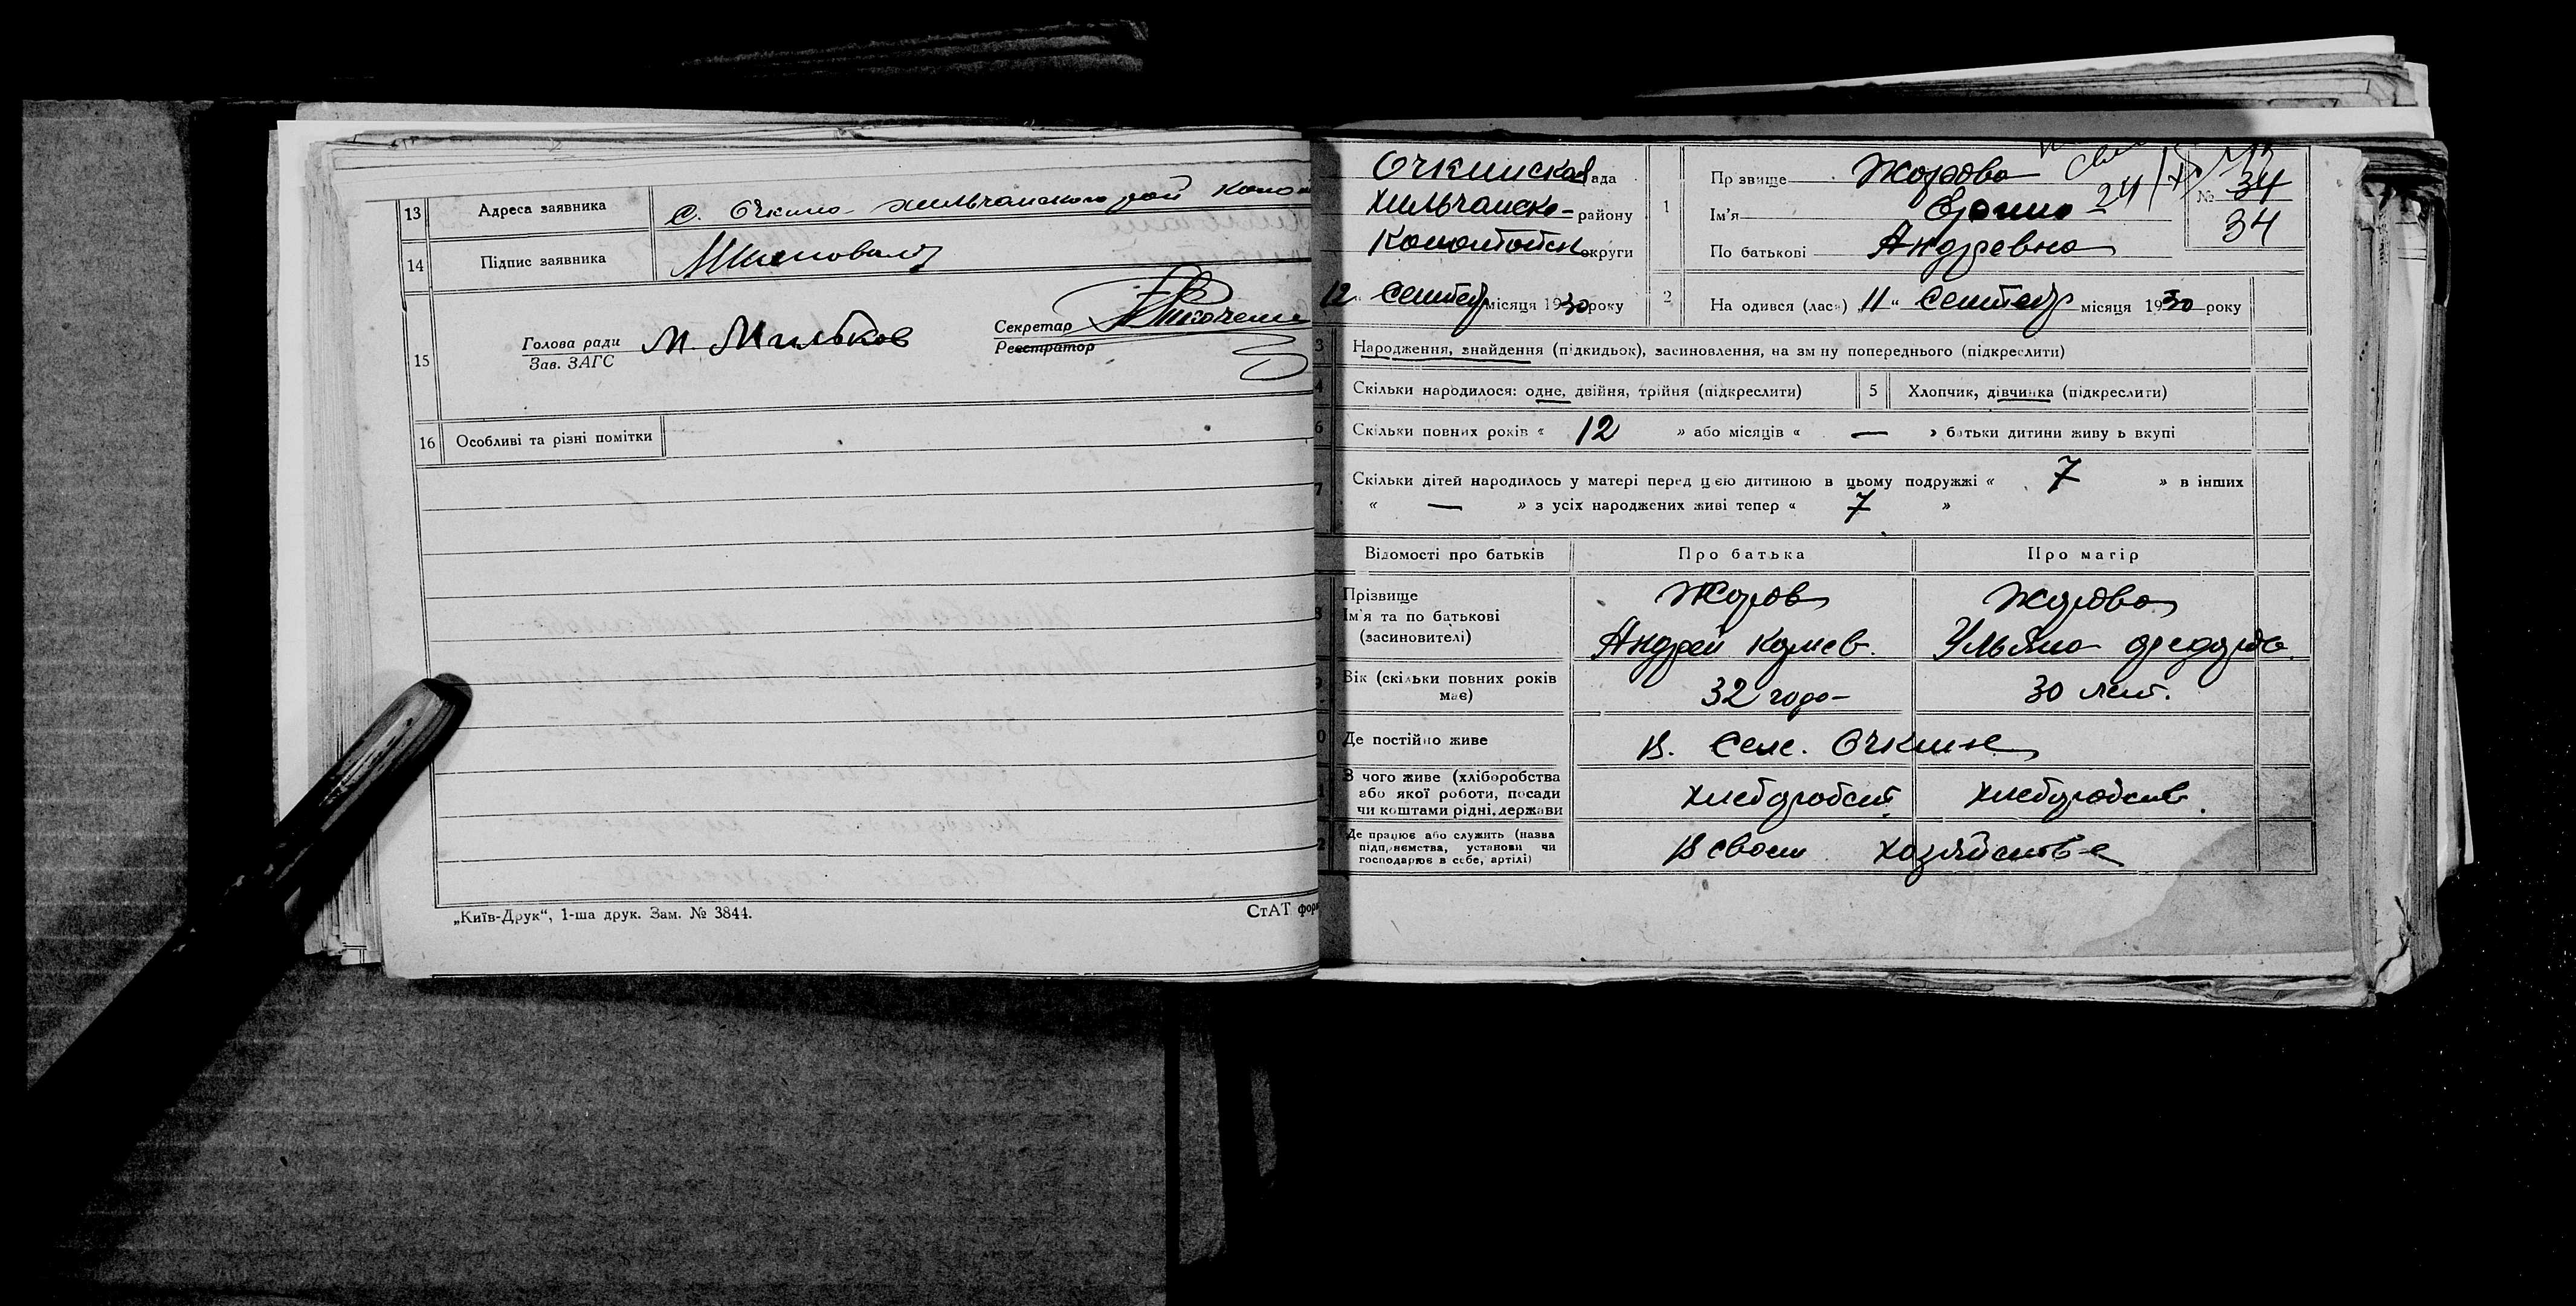 13 Адреса заявника С. Очкино Хильчанского рай Коно
14 Підпис заявника Шаповал
15 Голова ради М. Мильков Секретар
Зав. ЗАГС Реєстратор
16 Особливі та різні помітки
„Київ-Друк“, 1-ша друк. Зам. № 3844.
СтАТ фор
Очкинская рада
Хильчанско- району
Конотопск округи
12 Сентяб місяця 1930 року
1 Прізвище Жорова
Ім'я
По батькові Андревна
24
№ 34
34
2 На одився (лась) „11“ Сентябр місяця 1930 року
3 Народження, знайдення (підкидьок), засиновлення, на зм ну попереднього (підкреслити)
4 Скільки народилося: одне, двійня, трійня (підкреслити) 5 Хлопчик, дівчинка (підкреслити)
6 Скільки повних років « 12 » або місяців « — » батьки дитини живу ь вкупі
7 Скільки дітей народилось у матері перед цією дитиною в цьому подружжі « 7 » в інших
« — » з усіх народжених живі тепер « 7 »
Відомості про батьків Про батька Про матір
Прізвище Жоров Жорова
8 Ім'я та по батькові
(засиновителі) Андрей Ульяна Федоров.
9 Вік (скільки повних років
має) 32 года 30 лет.
0 Де постійно живе В. Селе. Очкине
З чого живе (хліборобства
1 або якої роботи, посади
чи коштами рідні, держави Хлебороbст Хлеборобств.
2 Де працює або служить (назва
підприємства, установи чи
господарює в себе, артілі) В своем хозяйстве